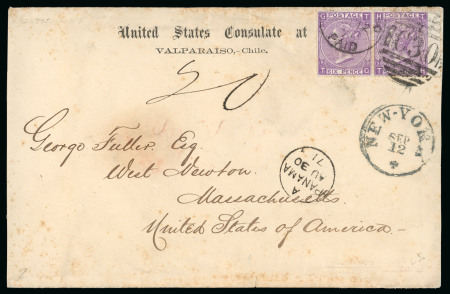 United States Consulate at
VALPARAISO,-Chile.
POSTAGE
SIX PENCE
POSTAGE
PAID
C30
20
George Fuller, Esq.
West Newton,
Massachusetts.
United States of America.
NEW-YORK
SEP
12
A
PANAMA
AU 30
71